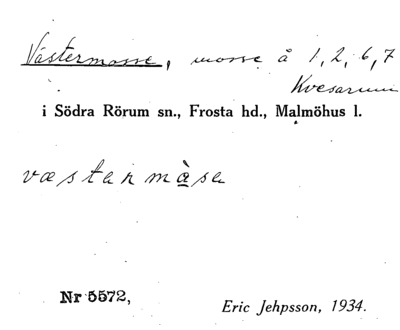 Västermosse, mosse å 1, 2, 6, 7
Kvesarum
i Södra Rörum sn., Frosta hd., Malmöhus l.
væstanmåsa
Nr 5572,
Eric Jehpsson, 1934.